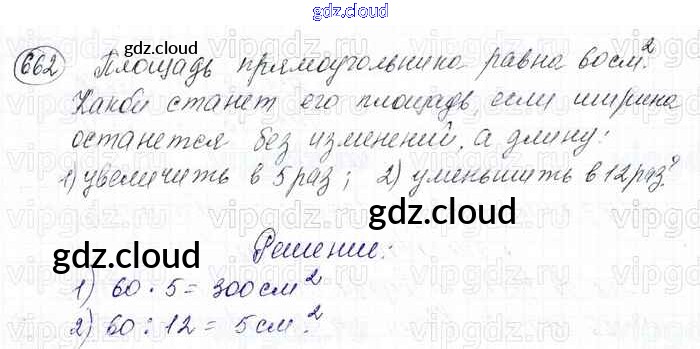 gdz.cloud
662 Площадь прямоугольника равна 60см².
gdz.cloud
Какой станет его площадь, если ширина
останется без изменений, а длину:
1) увеличить в 5 раз; 2) уменьшить в 12 раз?
gdz.cloud
Решение:
gdz.cloud
1) 60 · 5 = 300 см²
2) 60 : 12 = 5 см².
gdz.cloud